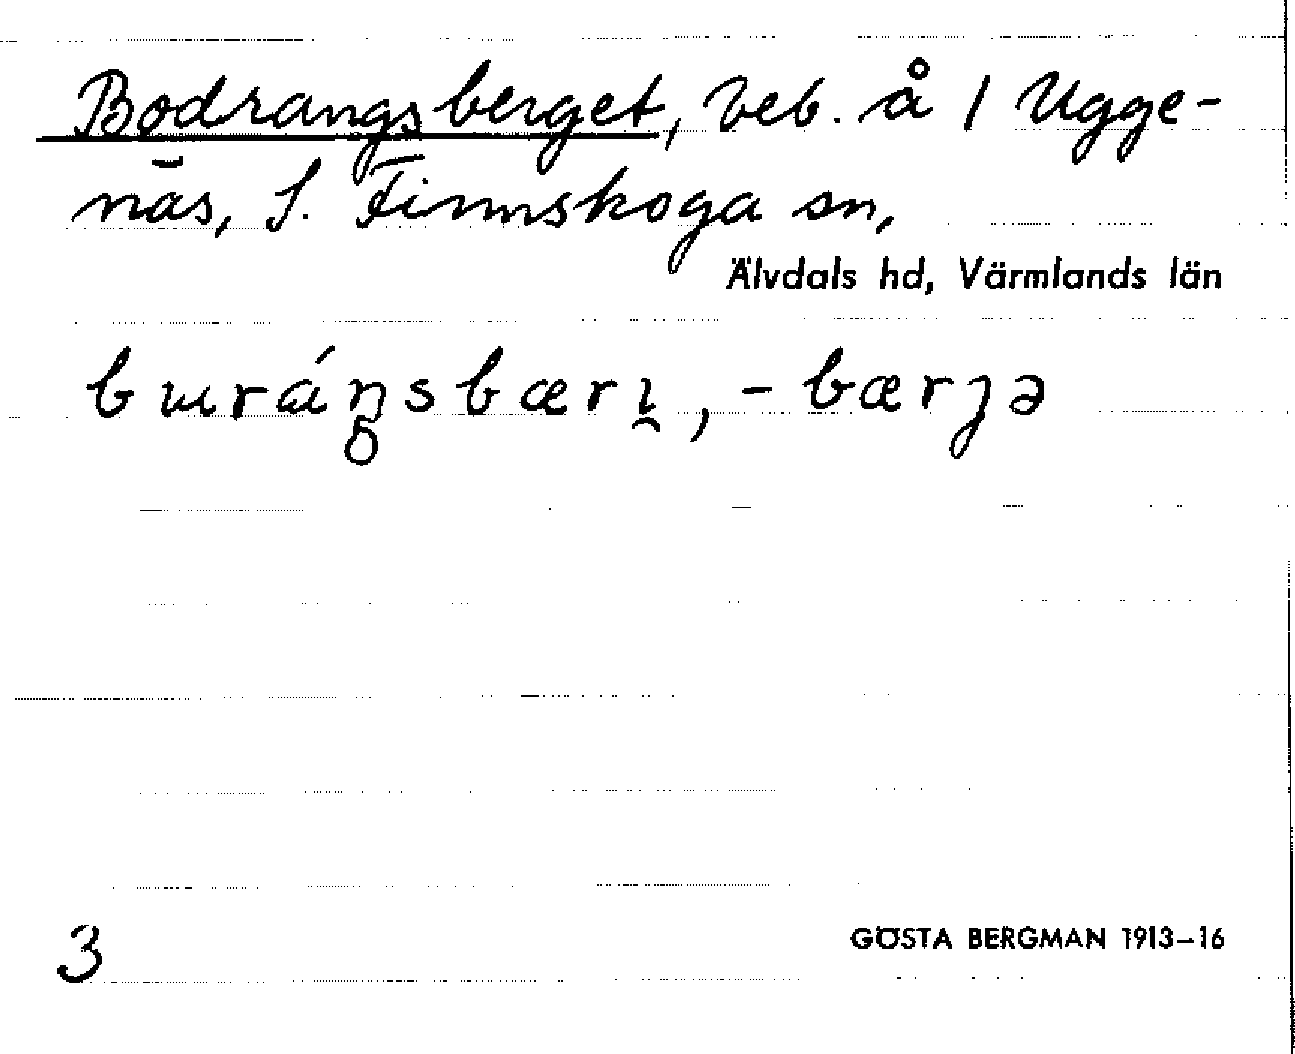 Bodrangsberget, beb. å 1 Ugge-
näs, S. Finnskoga sn,
Älvdals hd, Värmlands län
bɯráŋsbærı̯, -bærȷə
3
GÖSTA BERGMAN 1913–16